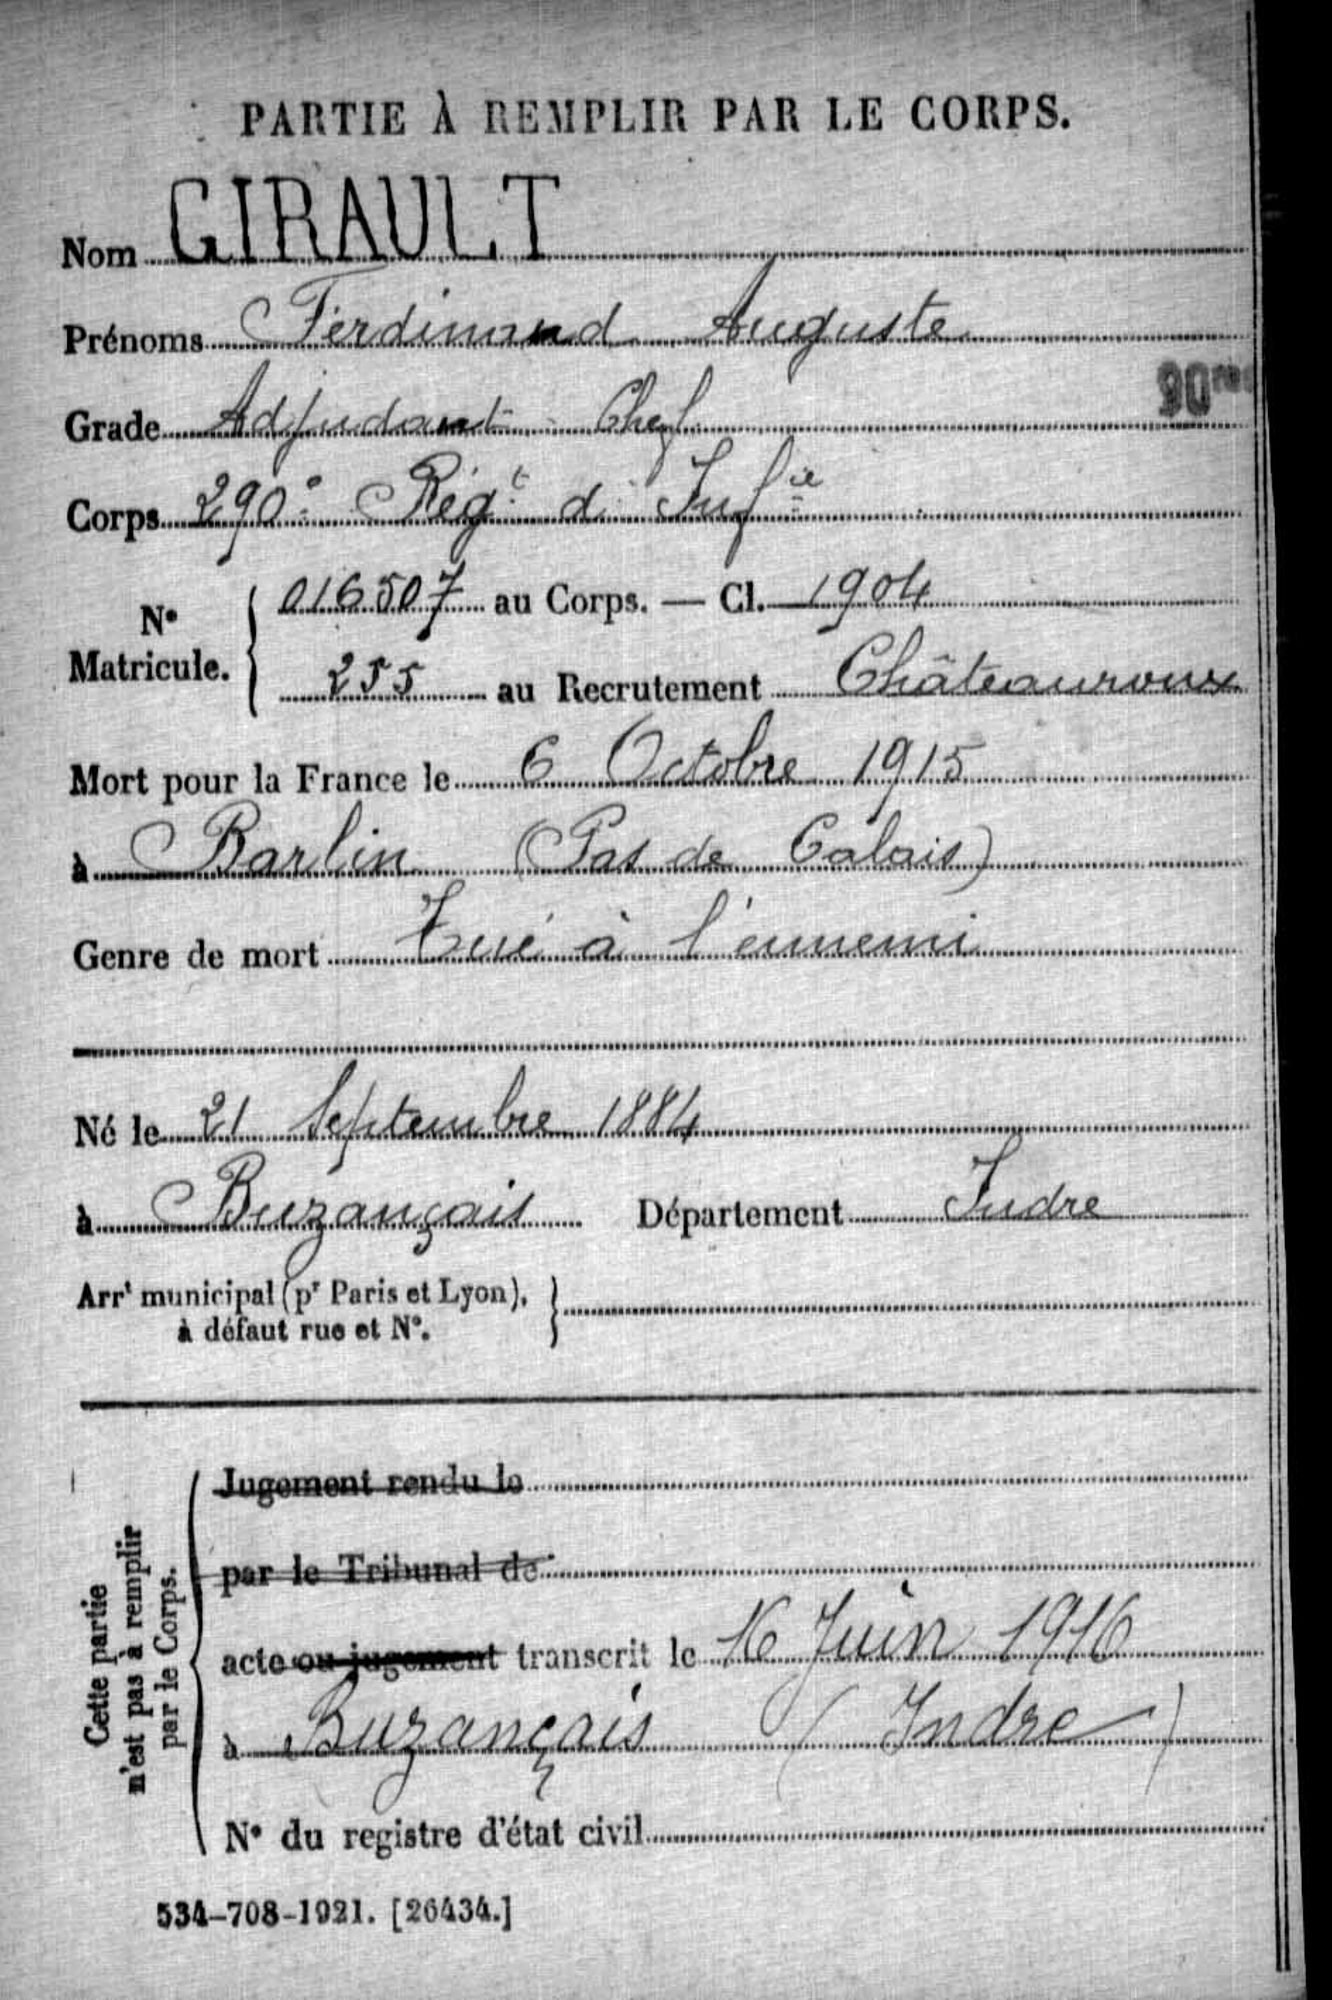 PARTIE À REMPLIR PAR LE CORPS.
Nom GIRAULT
Prénoms Ferdinand Auguste
90
Grade Adjudant-Chef
Corps 290e Régt d'Infie
No Matricule. 016507 au Corps. — Cl. 1904
255 au Recrutement Châteauroux
Mort pour la France le 6 Octobre 1915
à Barlin (Pas de Calais)
Genre de mort Tué à l'ennemi
Né le 21 Septembre 1884
à Buzançais Département Indre
Arrt municipal (pr Paris et Lyon),
à défaut rue et No.
Cette partie
n'est pas à remplir
par le Corps.
Jugement rendu le
par le Tribunal de
acte ou jugement transcrit le 16 Juin 1916
à Buzançais (Indre)
No du registre d'état civil
534-708-1921. [26434.]